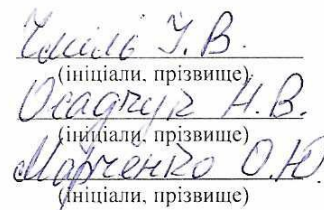 Чміль І.В.
(ініціали, прізвище)
Осадчук Н.В.
(ініціали, прізвище)
Марченко О.Ю.
(ініціали, прізвище)